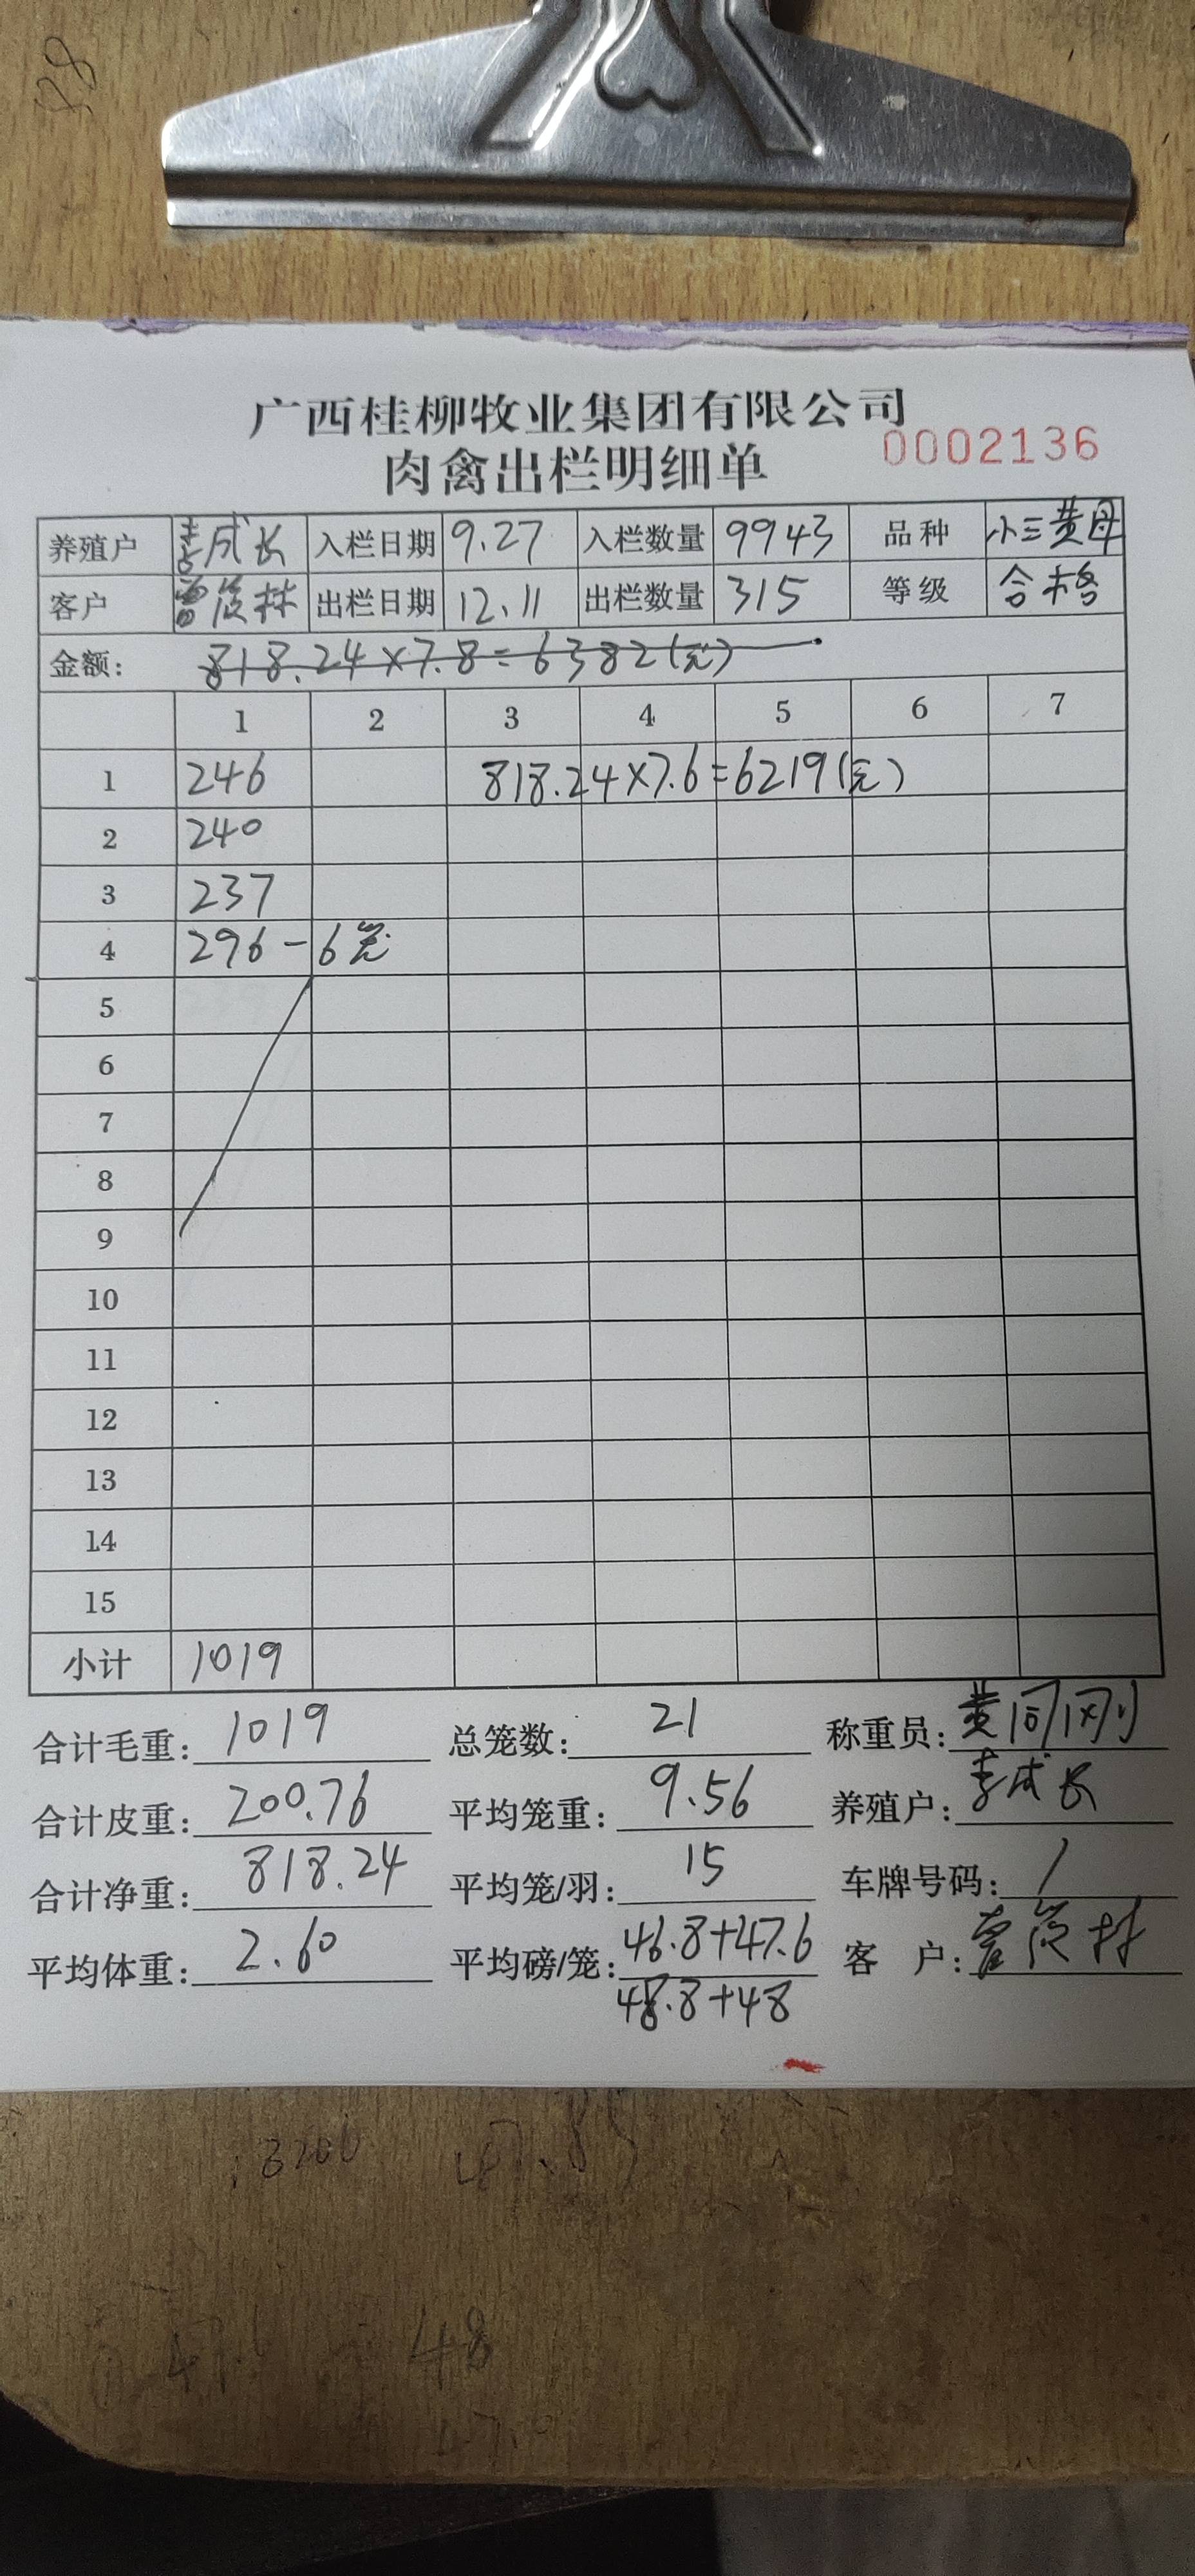 广西桂柳牧业集团有限公司
0002136
肉禽出栏明细单
养殖户 李成长 入栏日期 9.27 入栏数量 9943 品种 小三黄母
客户 曾俊林 出栏日期 12.11 出栏数量 315 等级 合格
金额: 818.24×7.8=6382(元)
1 2 3 4 5 6 7
1 246 818.24×7.6=6219(元)
2 240
3 237
4 296-6笼
5
6
7
8
9
10
11
12
13
14
15
小计 1019
合计毛重: 1019 总笼数: 21 称重员: 黄同刚
合计皮重: 200.76 平均笼重: 9.56 养殖户: 李成长
合计净重: 818.24 平均笼/羽: 15 车牌号码: /
平均体重: 2.60 平均磅/笼: 46.8+47.6 客 户: 曾俊林
48.8+48
48